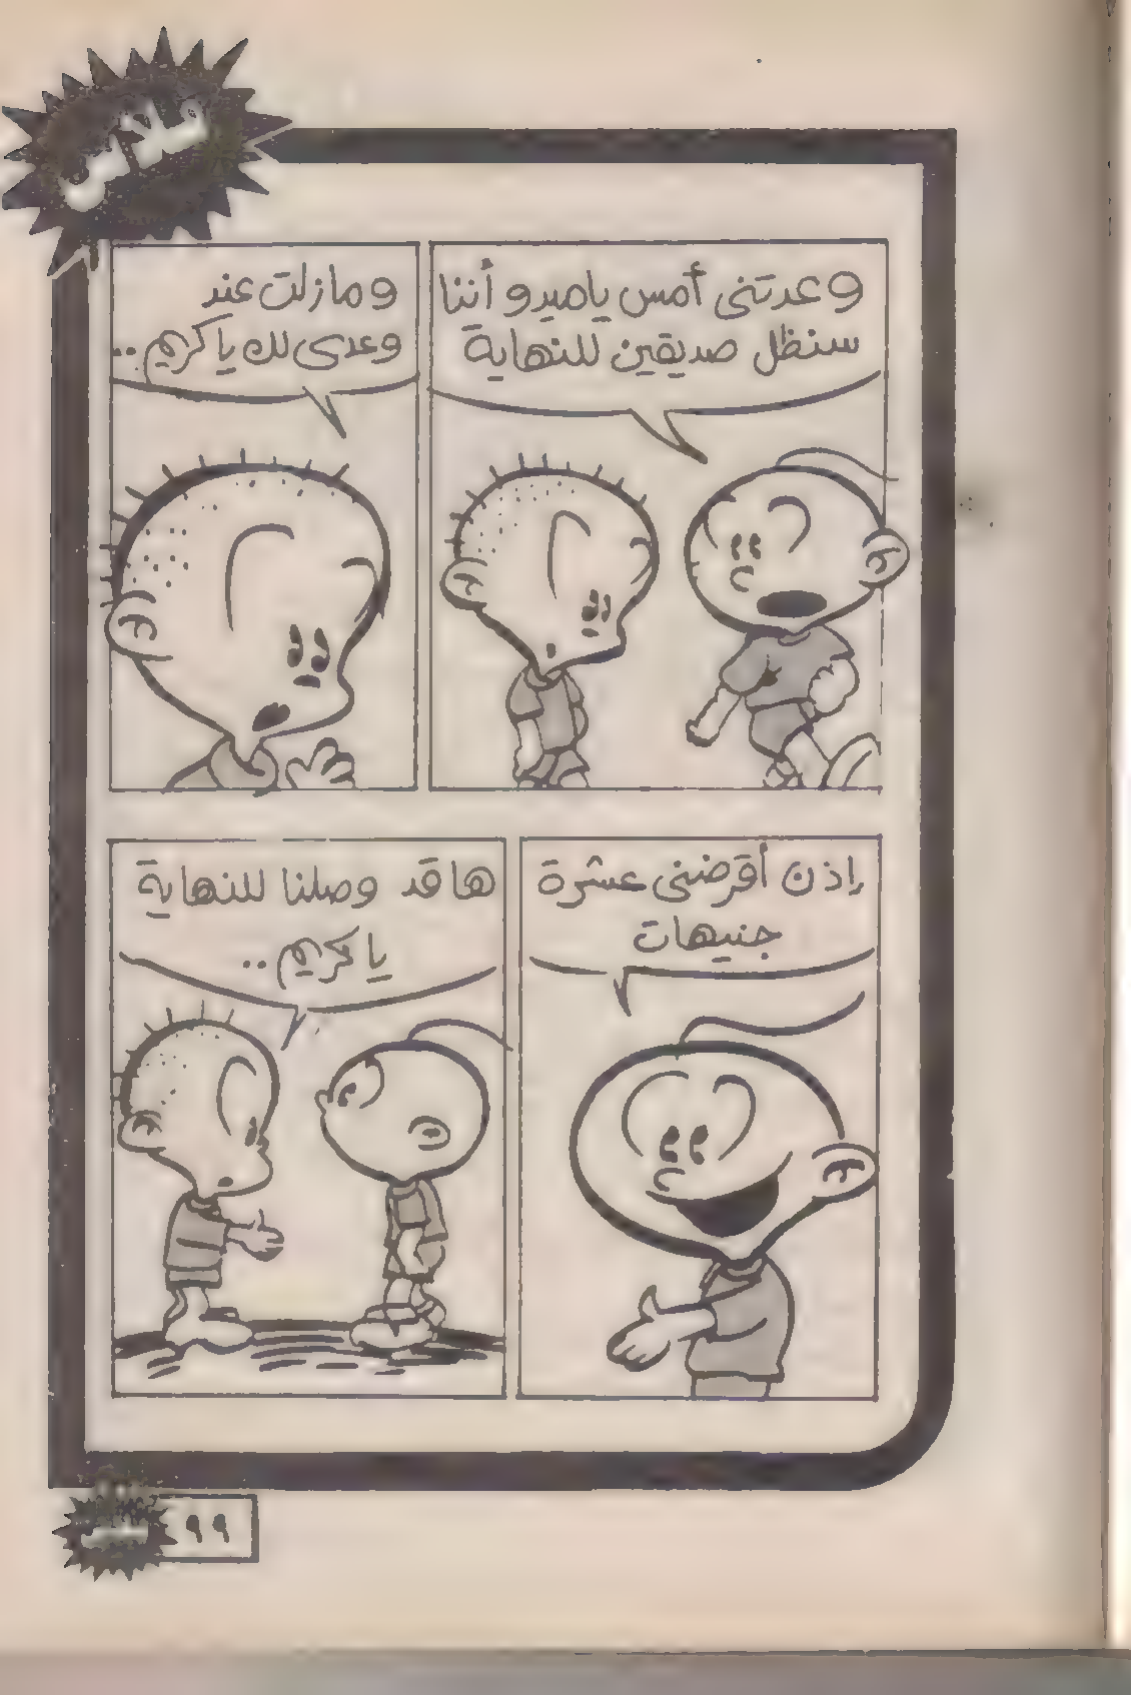 فلاش
وعدتنى أمس ياميدو أننا
سنظل صديقين للنهاية
ومازلت عند
وعدى لك ياكريم..
إذن أقرضنى عشرة
جنيهات
هاقد وصلنا للنهاية
ياكريم..
٩٩